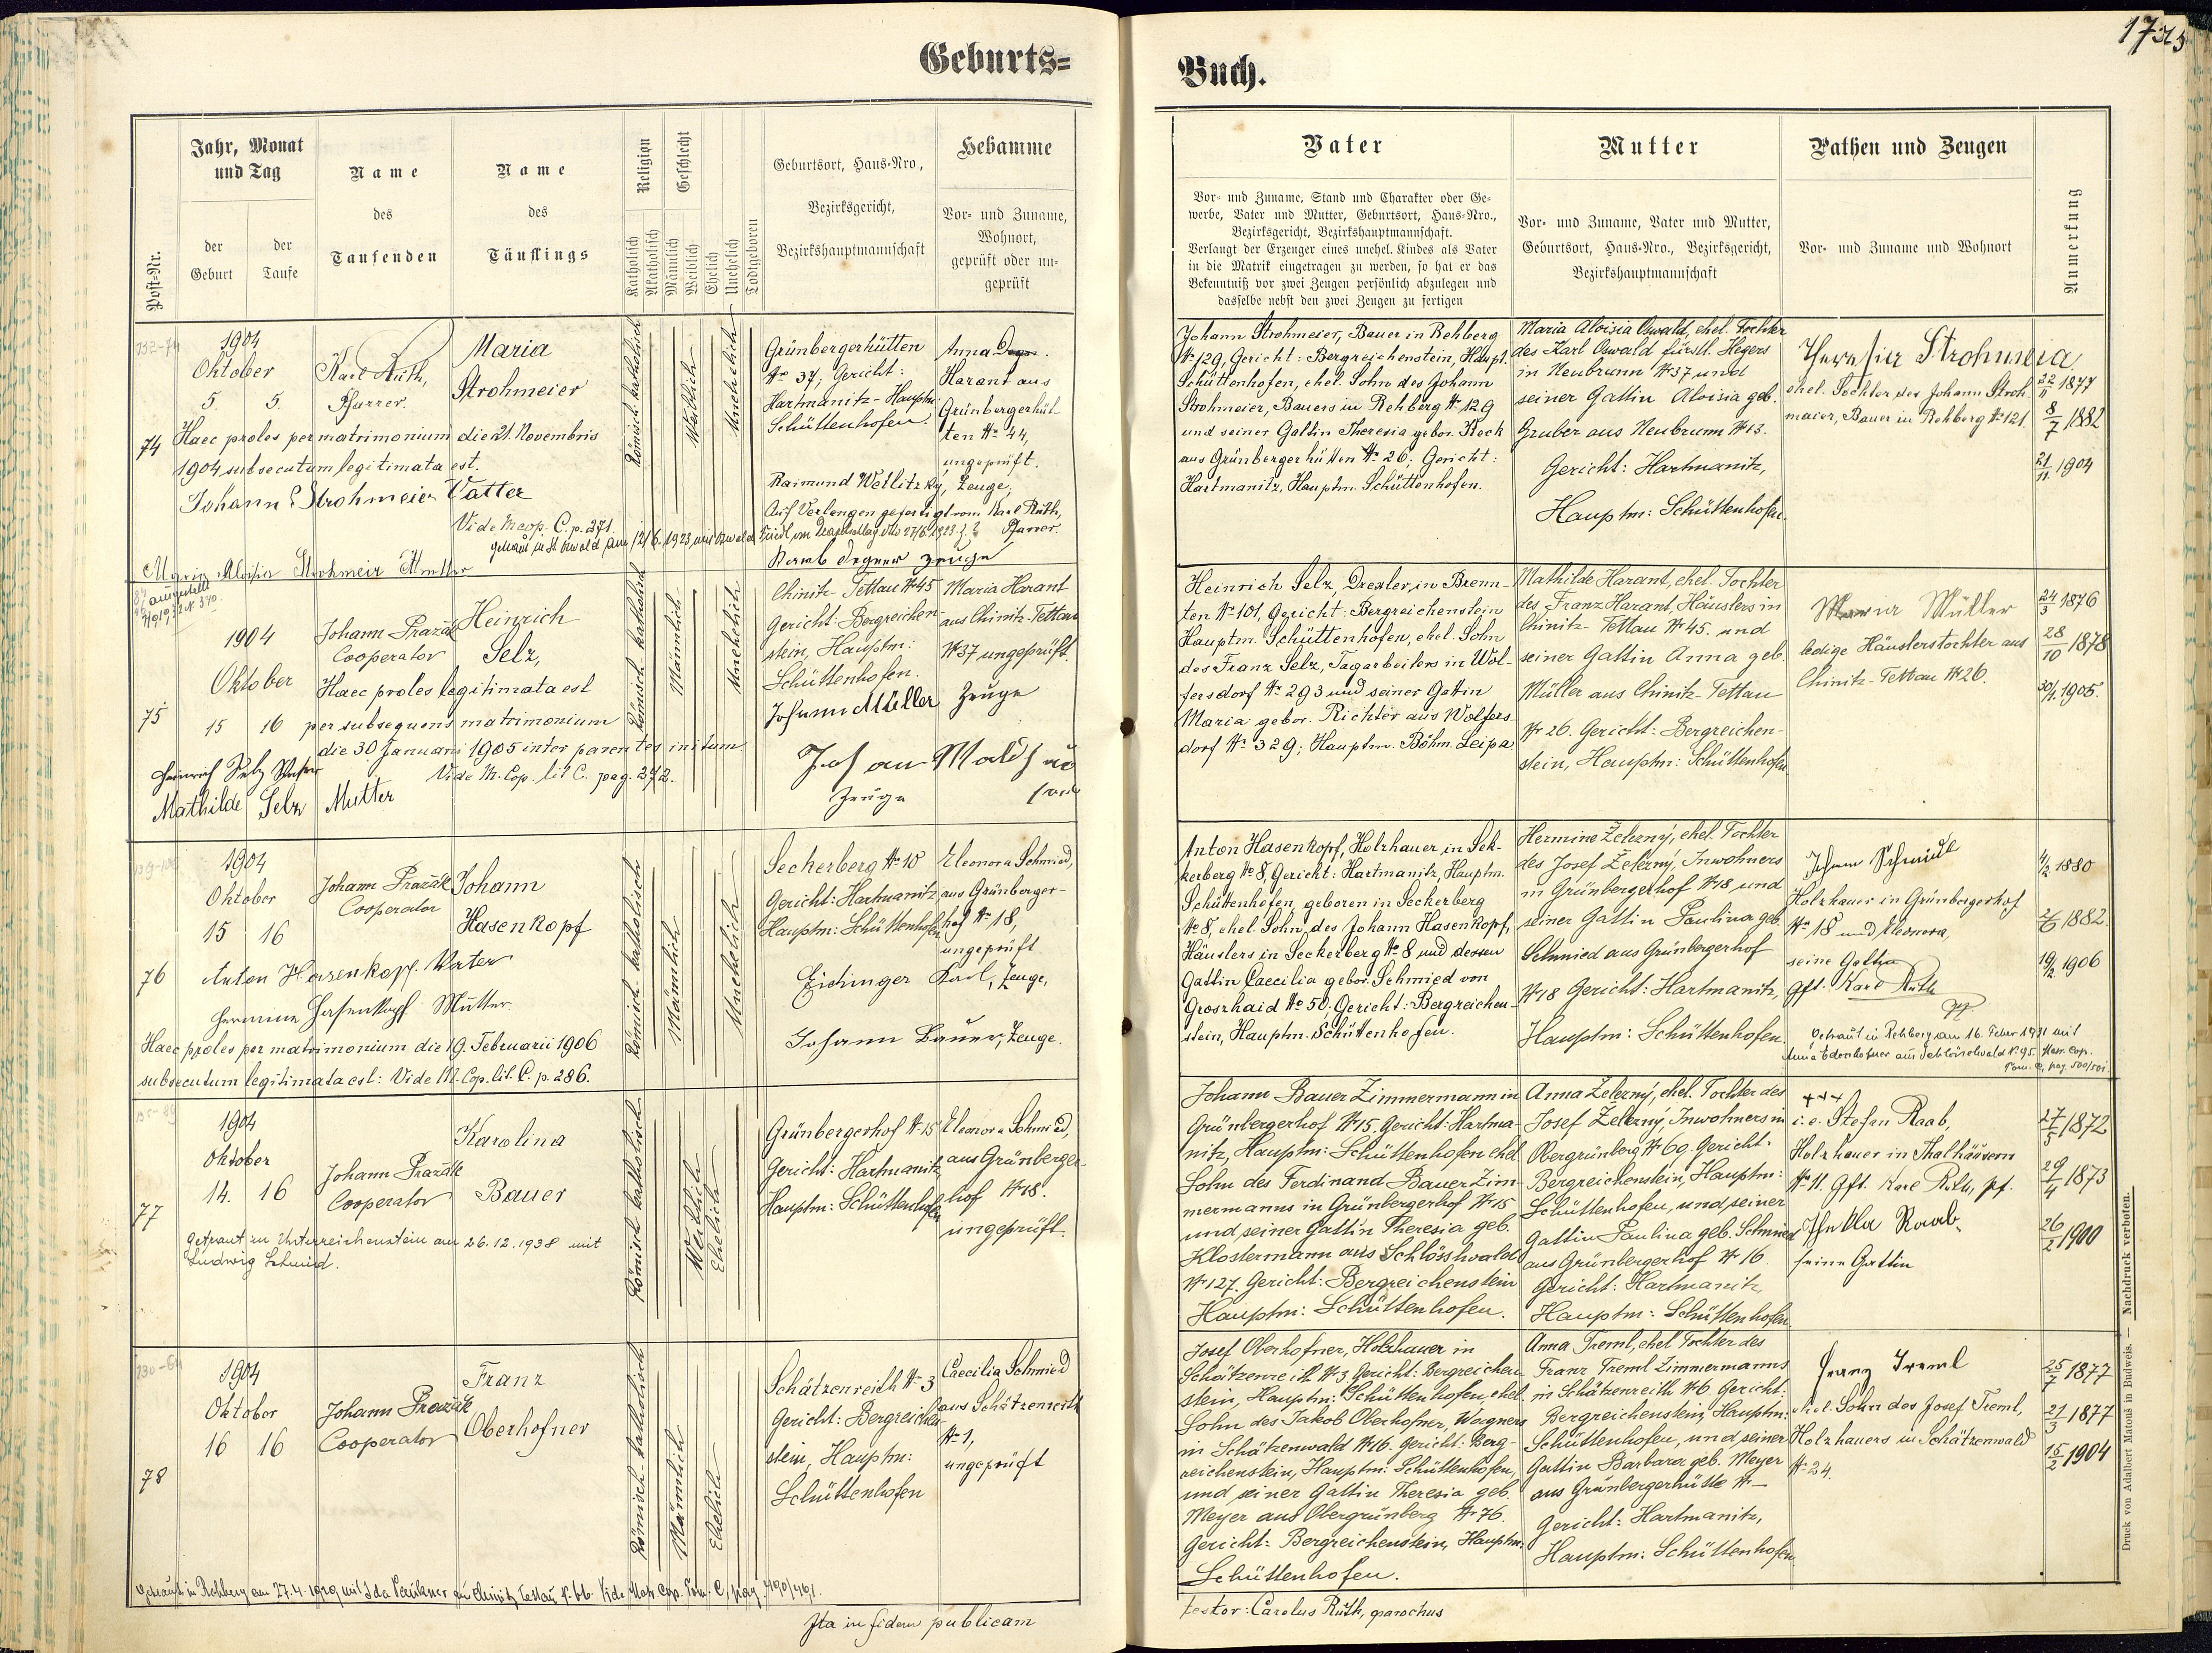 Geburts=
Buch.
Post-Nr.
Jahr, Monat
und Tag
der
Geburt
der
Taufe
Name
des
Taufenden
Name
des
Täuflings
Religion
Katholisch
Akatholisch
Geschlecht
Männlich
Weiblich
Ehelich
Unehelich
Todtgeboren
Geburtsort, Haus-Nro,
Bezirksgericht,
Bezirkshauptmannschaft
Hebamme
Vor- und Zuname,
Wohnort,
geprüft oder un-
geprüft
Vater
Vor- und Zuname, Stand und Charakter oder Ge-
werbe, Vater und Mutter, Geburtsort, Haus-Nro.,
Bezirksgericht, Bezirkshauptmannschaft.
Verlangt der Erzeuger eines unehel. Kindes als Vater
in die Matrik eingetragen zu werden, so hat er das
Bekenntniß vor zwei Zeugen persönlich abzulegen und
dasselbe nebst den zwei Zeugen zu fertigen
Mutter
Vor- und Zuname, Vater und Mutter,
Geburtsort, Haus-Nro., Bezirksgericht,
Bezirkshauptmannschaft
Pathen und Zeugen
Vor- und Zuname und Wohnort
Anmerkung
74
1904
Oktober
5. 5.
Karl Rüth,
Pfarrer.
Maria
Strohmeier
Haec proles per matrimonium die 21 Novembris
1904 subsecutum legitimata est.
Johann Strohmeier Vatter
Vide M. cop. C. p. 271.
Maria Aloisia Strohmeir Mutter
Römisch-katholisch
Weiblich
Unehelich
Grünbergerhütten
No 37; Gericht:
Hartmanitz-Hauptm
Schüttenhofen.
Anna
Harant aus
Grünbergerhüt
ten No 44,
ungeprüft.
Raimund Wetlitzky, Zeuge,
Auf Verlangen gefertigt vom Karl Rüth,
Pfarrer.
Zeuge
Johann Strohmeier, Bauer in Rehberg
No 129, Gericht: Bergreichenstein, Haupt.
Schüttenhofen, ehel. Sohn des Johann
Strohmeier, Bauers in Rehberg No 129
und seiner Gattin Theresia gebor. Keck
aus Grünbergerhütten No 26; Gericht:
Hartmanitz, Hauptm. Schüttenhofen.
Maria Aloisia Oswald, ehel. Tochter
des Karl Oswald fürstl. Hegers
in Neubrunn No 37 und
seiner Gattin Aloisia geb.
Gruber aus Neubrunn No 13.
Gericht: Hartmanitz,
Hauptm: Schüttenhofen.
Theresia Strohmeia
ehel. Tochter des Johann Stroh
maier, Bauer in Rehberg No 121.
22/11 1877
8/7 1882
21/11 1904
75
1904
Oktober
15 16
Johann Pražák
Cooperator
Heinrich
Selz,
Haec proles legitimata est
per subsequens matrimonium
die 30 Januari 1905 inter parentes initum
Vide M. Cop. lit C. pag. 272.
Heinrich Selz Vater
Mathilde Selz Mutter
Römisch-katholisch
Männlich
Unehelich
Chinitz-Tettau No 45
Gericht: Bergreichen-
stein, Hauptm:
Schüttenhofen.
Maria Harant
aus Chinitz-Tettau
No 37 ungeprüft.
Johann Müller Zeuge
Zeuge
Heinrich Selz, Drexler, in Brenn-
ten No 101, Gericht: Bergreichenstein
Hauptm. Schüttenhofen, ehel. Sohn
des Franz Selz, Tagarbeiters in Wol-
fersdorf No 293 und seiner Gattin
Maria gebor. Richter aus Wolfers-
dorf No 329; Hauptm. Böhm. Leipa
Mathilde Harant, ehel. Tochter
des Franz Harant, Häuslers in
Chinitz-Tettau No 45. und
seiner Gattin Anna geb.
Müller aus Chinitz-Tettau
No 26. Gericht: Bergreichen-
stein, Hauptm: Schüttenhofen
Maria Müller
ledige Häuslerstochter aus
Chinitz-Tettau No 26.
24/3 1876
28/10 1878
30/1. 1905.
76
1904
Oktober
15 16
Johann Pražák
Cooperator
Johann
Hasenkopf
Anton Hasenkopf Vater
Hermine Hasenkopf Mutter
Haec proles per matrimonium die 19. Februarii 1906
subsecutum legitimata est: Vide M. Cop. lit. C. p. 286.
Römisch-katholisch
Männlich
Unehelich
Seckerberg No 10
Gericht: Hartmanitz
Hauptm: Schüttenhofen
Eleonora Schmied,
aus Grünberger-
hof No 18,
ungeprüft
Eichinger Karl, Zeuge,
Johann Bauer, Zeuge.
Anton Hasenkopf, Holzhauer, in Sek-
kerberg No 8, Gericht: Hartmanitz, Hauptm.
Schüttenhofen, geboren in Seckerberg
No 8, ehel. Sohn des Johann Hasenkopf,
Häuslers in Seckerberg No 8 und dessen
Gattin Caecilia gebor. Schmied von
Groszhaid No 50, Gericht: Bergreichen-
stein, Hauptm. Schüttenhofen.
Hermine Železný, ehel. Tochter
des Josef Železný, Inwohners
in Grünbergerhof No 18 und
seiner Gattin Paulina geb
Schmied aus Grünbergerhof
No 18 Gericht: Hartmanitz,
Hauptm: Schüttenhofen.
Johann Schmied
Holzhauer in Grünbergerhof
No 18 und Eleonora,
seine Gattin
Gft. Karl Rüth
Getraut in Rehberg am 16. Feber 1931 mit
1880
1882.
19/2 1906
77
1904
Oktober
14. 16
Johann Pražák
Cooperator
Karolina
Bauer
Getraut zu Unterreichenstein am 26.12.1938 mit
Ludwig Schmid.
Römisch-katholisch
Weiblich
Ehelich
Grünbergerhof No 15
Gericht: Hartmanitz
Hauptm: Schüttenhofen
Eleonora Schmied,
aus Grünberger-
hof No 18.
ungeprüft
Johann Bauer Zimmermann in
Grünbergerhof No 15. Gericht: Hartma-
nitz, Hauptm: Schüttenhofen ehel
Sohn des Ferdinand Bauer Zim-
mermanns in Grünbergerhof No 15
und seiner Gattin Theresia geb.
Klostermann aus Schlösslwald
No 127. Gericht: Bergreichenstein
Hauptm: Schüttenhofen.
Anna Železný, ehel. Tochter des
Josef Železný, Inwohners in
Obergrünberg No 69. Gericht:
Bergreichenstein, Hauptm:
Schüttenhofen, und seiner
Gattin Paulina geb. Schmied
aus Grünbergerhof No 16
Gericht: Hartmanitz,
Hauptm: Schüttenhofen.
+++
i. e. Stefan Raab,
Holzhauer in Thalhäusern
No 11. Gft. Karl Rüth, pf.
Thekla Raab
seine Gattin
27/5 1872
29/4 1873
26/2 1900
78
1904
Oktober
16 16
Johann Pražák
Cooperator
Franz
Oberhofner
Römisch-katholisch
Männlich
Ehelich
Schätzenreith No 3
Gericht: Bergreichen
stein, Hauptm:
Schüttenhofen
Caecilia Schmied
aus Schätzenreith
No 1,
ungeprüft
Josef Oberhofner, Holzhauer in
Schätzenreith No 3 Gericht: Bergreichen
stein, Hauptm: Schüttenhofen, ehel
Sohn des Jakob Oberhofner, Wagners
in Schätzenwald No 16. Gericht: Berg-
reichenstein, Hauptm: Schüttenhofen,
und seiner Gattin Theresia geb.
Meyer aus Obergrünberg No 76.
Gericht: Bergreichenstein, Hauptm:
Schüttenhofen.
Anna Treml, ehel Tochter des
Franz Treml Zimmermanns
in Schätzenreith No 6. Gericht:
Bergreichenstein, Hauptm:
Schüttenhofen, und seiner
Gattin Barbara geb. Meyer
aus Grünbergerhütte No —
Gericht: Hartmanitz,
Hauptm: Schüttenhofen.
Franz Treml
ehel. Sohn des Josef Treml,
Holzhauers in Schätzenwald
No 24.
25/7 1877
21/3 1877
15/2 1904
Getraut in Rehberg am 27.4.1929 mit Ida
Ita in fidem publicam
testor: Carolus Rüth, parochus
Druck von Adalbert Matouš in Budweis. — Nachdruck verboten.